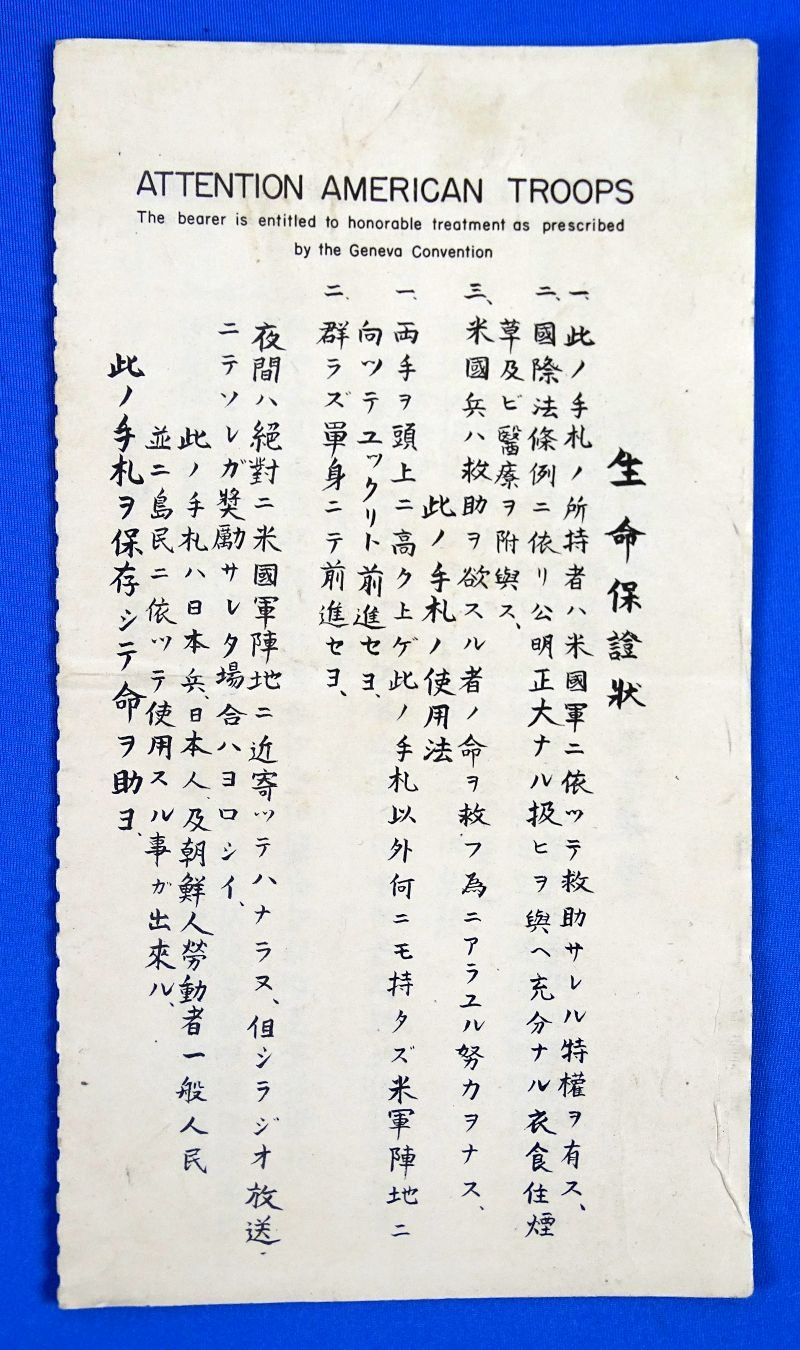 ATTENTION AMERICAN TROOPS
The bearer is entitled to honorable treatment as prescribed
by the Geneva Convention
生命保證狀
一、此ノ手札ノ所持者ハ米國軍ニ依ツテ救助サレル特權ヲ有ス、
二、國際法條例ニ依リ公明正大ナル扱ヒヲ與ヘ充分ナル衣食住煙
草及ビ醫療ヲ附與ス、
三、米國兵ハ救助ヲ欲スル者ノ命ヲ救フ為ニアラユル努力ヲナス、
此ノ手札ノ使用法
一、両手ヲ頭上ニ高ク上ゲ此ノ手札以外何ニモ持タズ米軍陣地ニ
向ツテユックリト前進セヨ、
二、群ラズ單身ニテ前進セヨ、
夜間ハ絕對ニ米國軍陣地ニ近寄ツテハナラヌ、但シラジオ放送
ニテソレガ奨勵サレタ場合ハヨロシイ、
此ノ手札ハ日本兵、日本人、及朝鮮人勞動者一般人民
並ニ島民ニ依ツテ使用スル事ガ出來ル、
此ノ手札ヲ保存シテ命ヲ助ヨ、